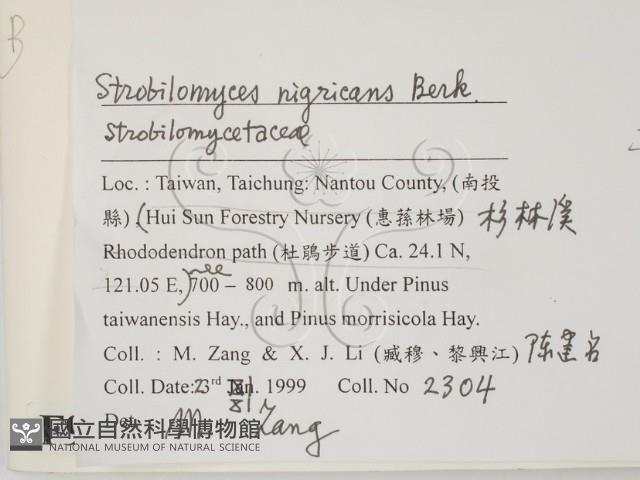 B
Strobilomyces nigricans Berk.
Strobilomycetaceae
Loc. : Taiwan, Taichung: Nantou County, (南投
縣), (Hui Sun Forestry Nursery (惠蓀林場) 杉林溪
Rhododendron path (杜鵑步道) Ca. 24.1 N,
121.05 E, 700 – 800 m. alt. Under Pinus
taiwanensis Hay., and Pinus morrisicola Hay.
Coll. : M. Zang & X. J. Li (臧穆、黎興江) 陈建名
Coll. Date: 23rd 1999 Coll. No 2304
Det. M Zang
國立自然科學博物館
NATIONAL MUSEUM OF NATURAL SCIENCE